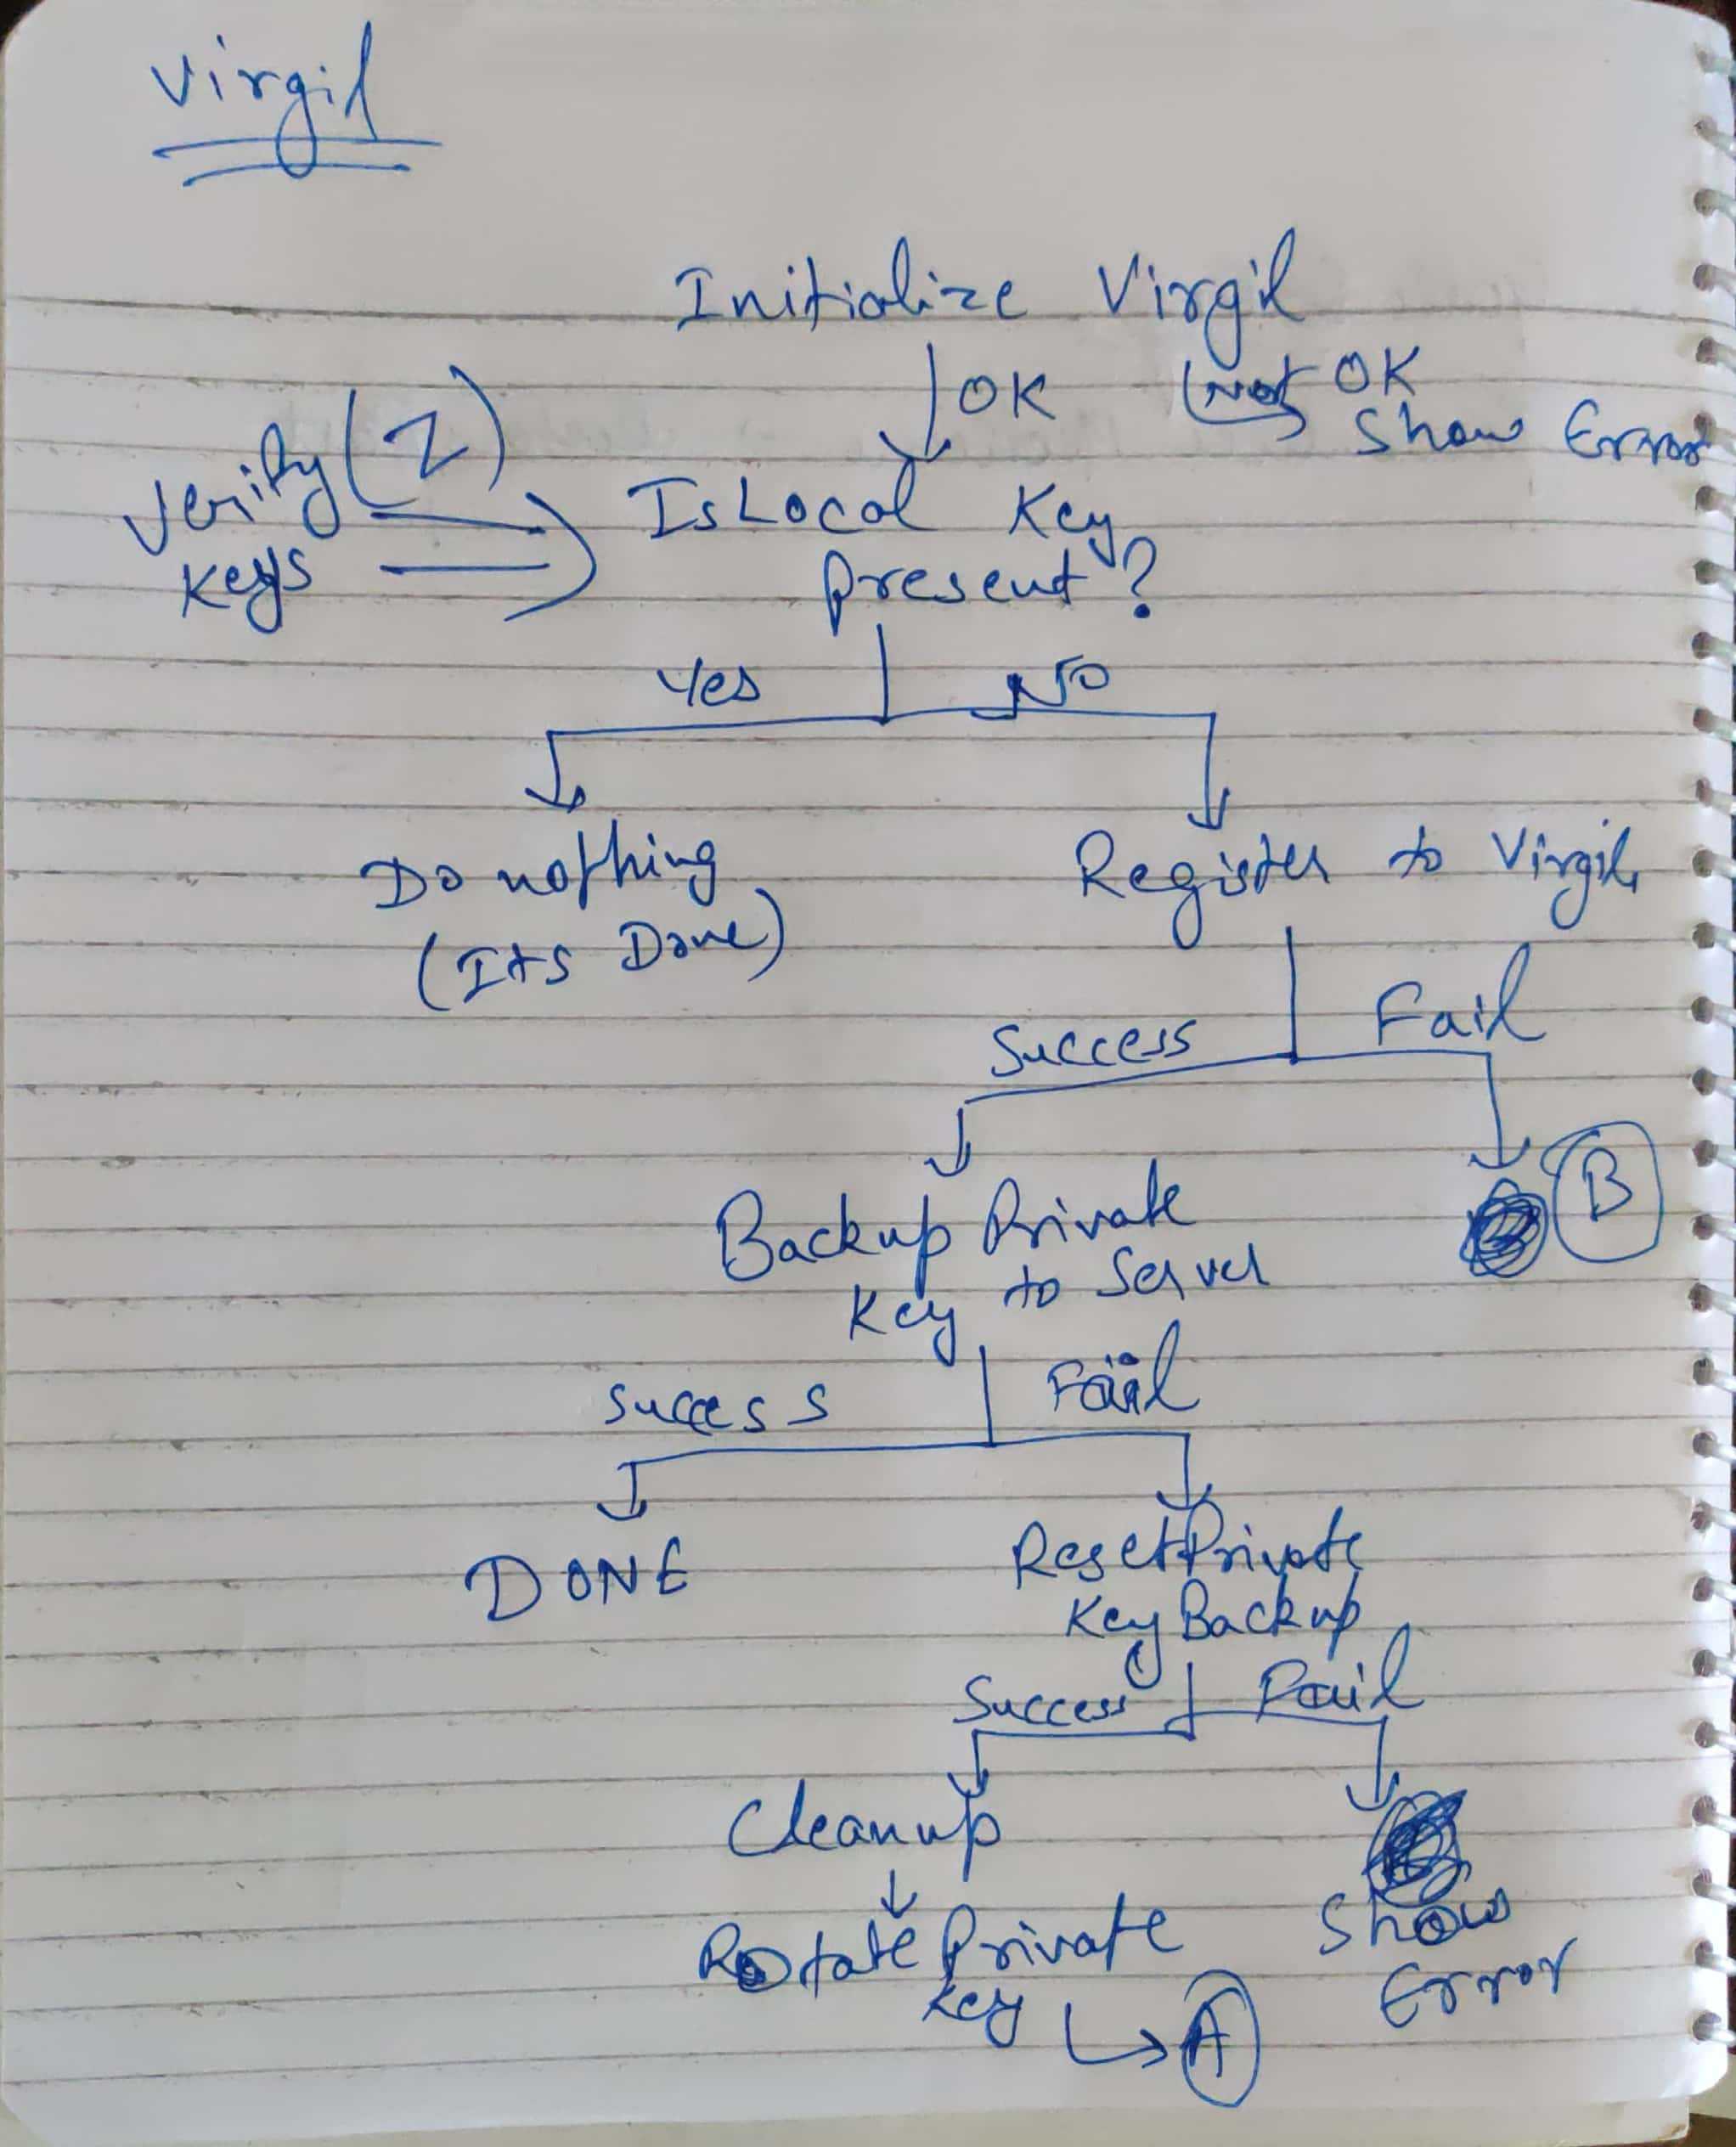 Virgil
Initialize Virgil
OK
Not OK
Show Error
Verify (Z)
Keys
IsLocal Key
present?
Yes
No
Do nothing
(Its Done)
Register to Virgil
Success
Fail
B
Backup Private
Key to Server
Success
Fail
DONE
ResetPrivate
Key Backup
Success
Fail
Cleanup
Rotate Private
Key
A
Show
Error